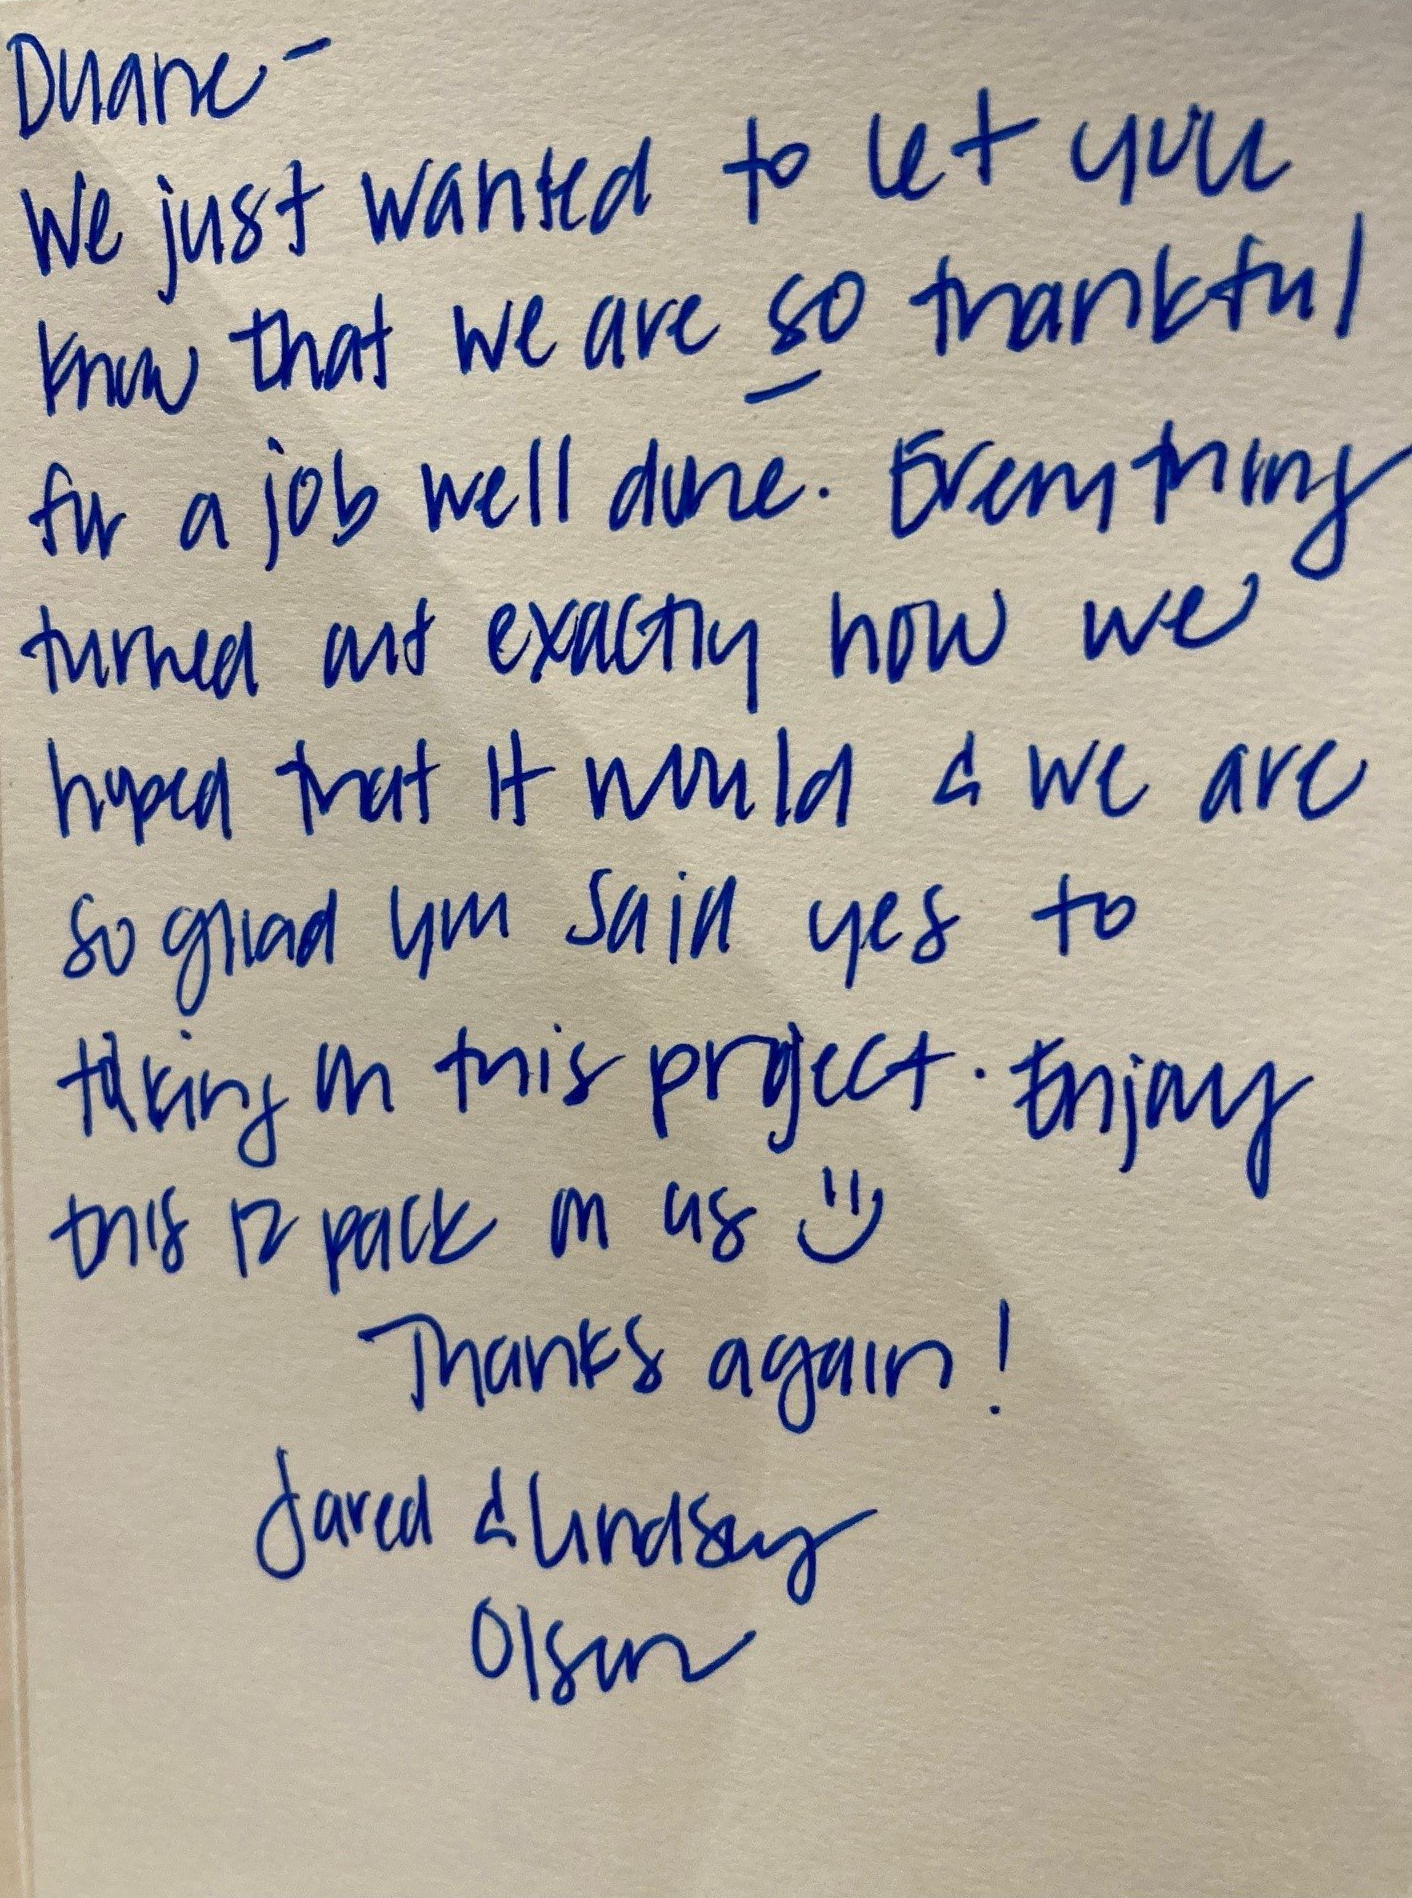 Duane -
We just wanted to let you
know that we are so thankful
for a job well done. Everything
turned out exactly how we
hoped that it would & we are
so glad you said yes to
taking on this project. Enjoy
this 12 pack on us :)
Thanks again!
Jared & Lindsay
Olsen